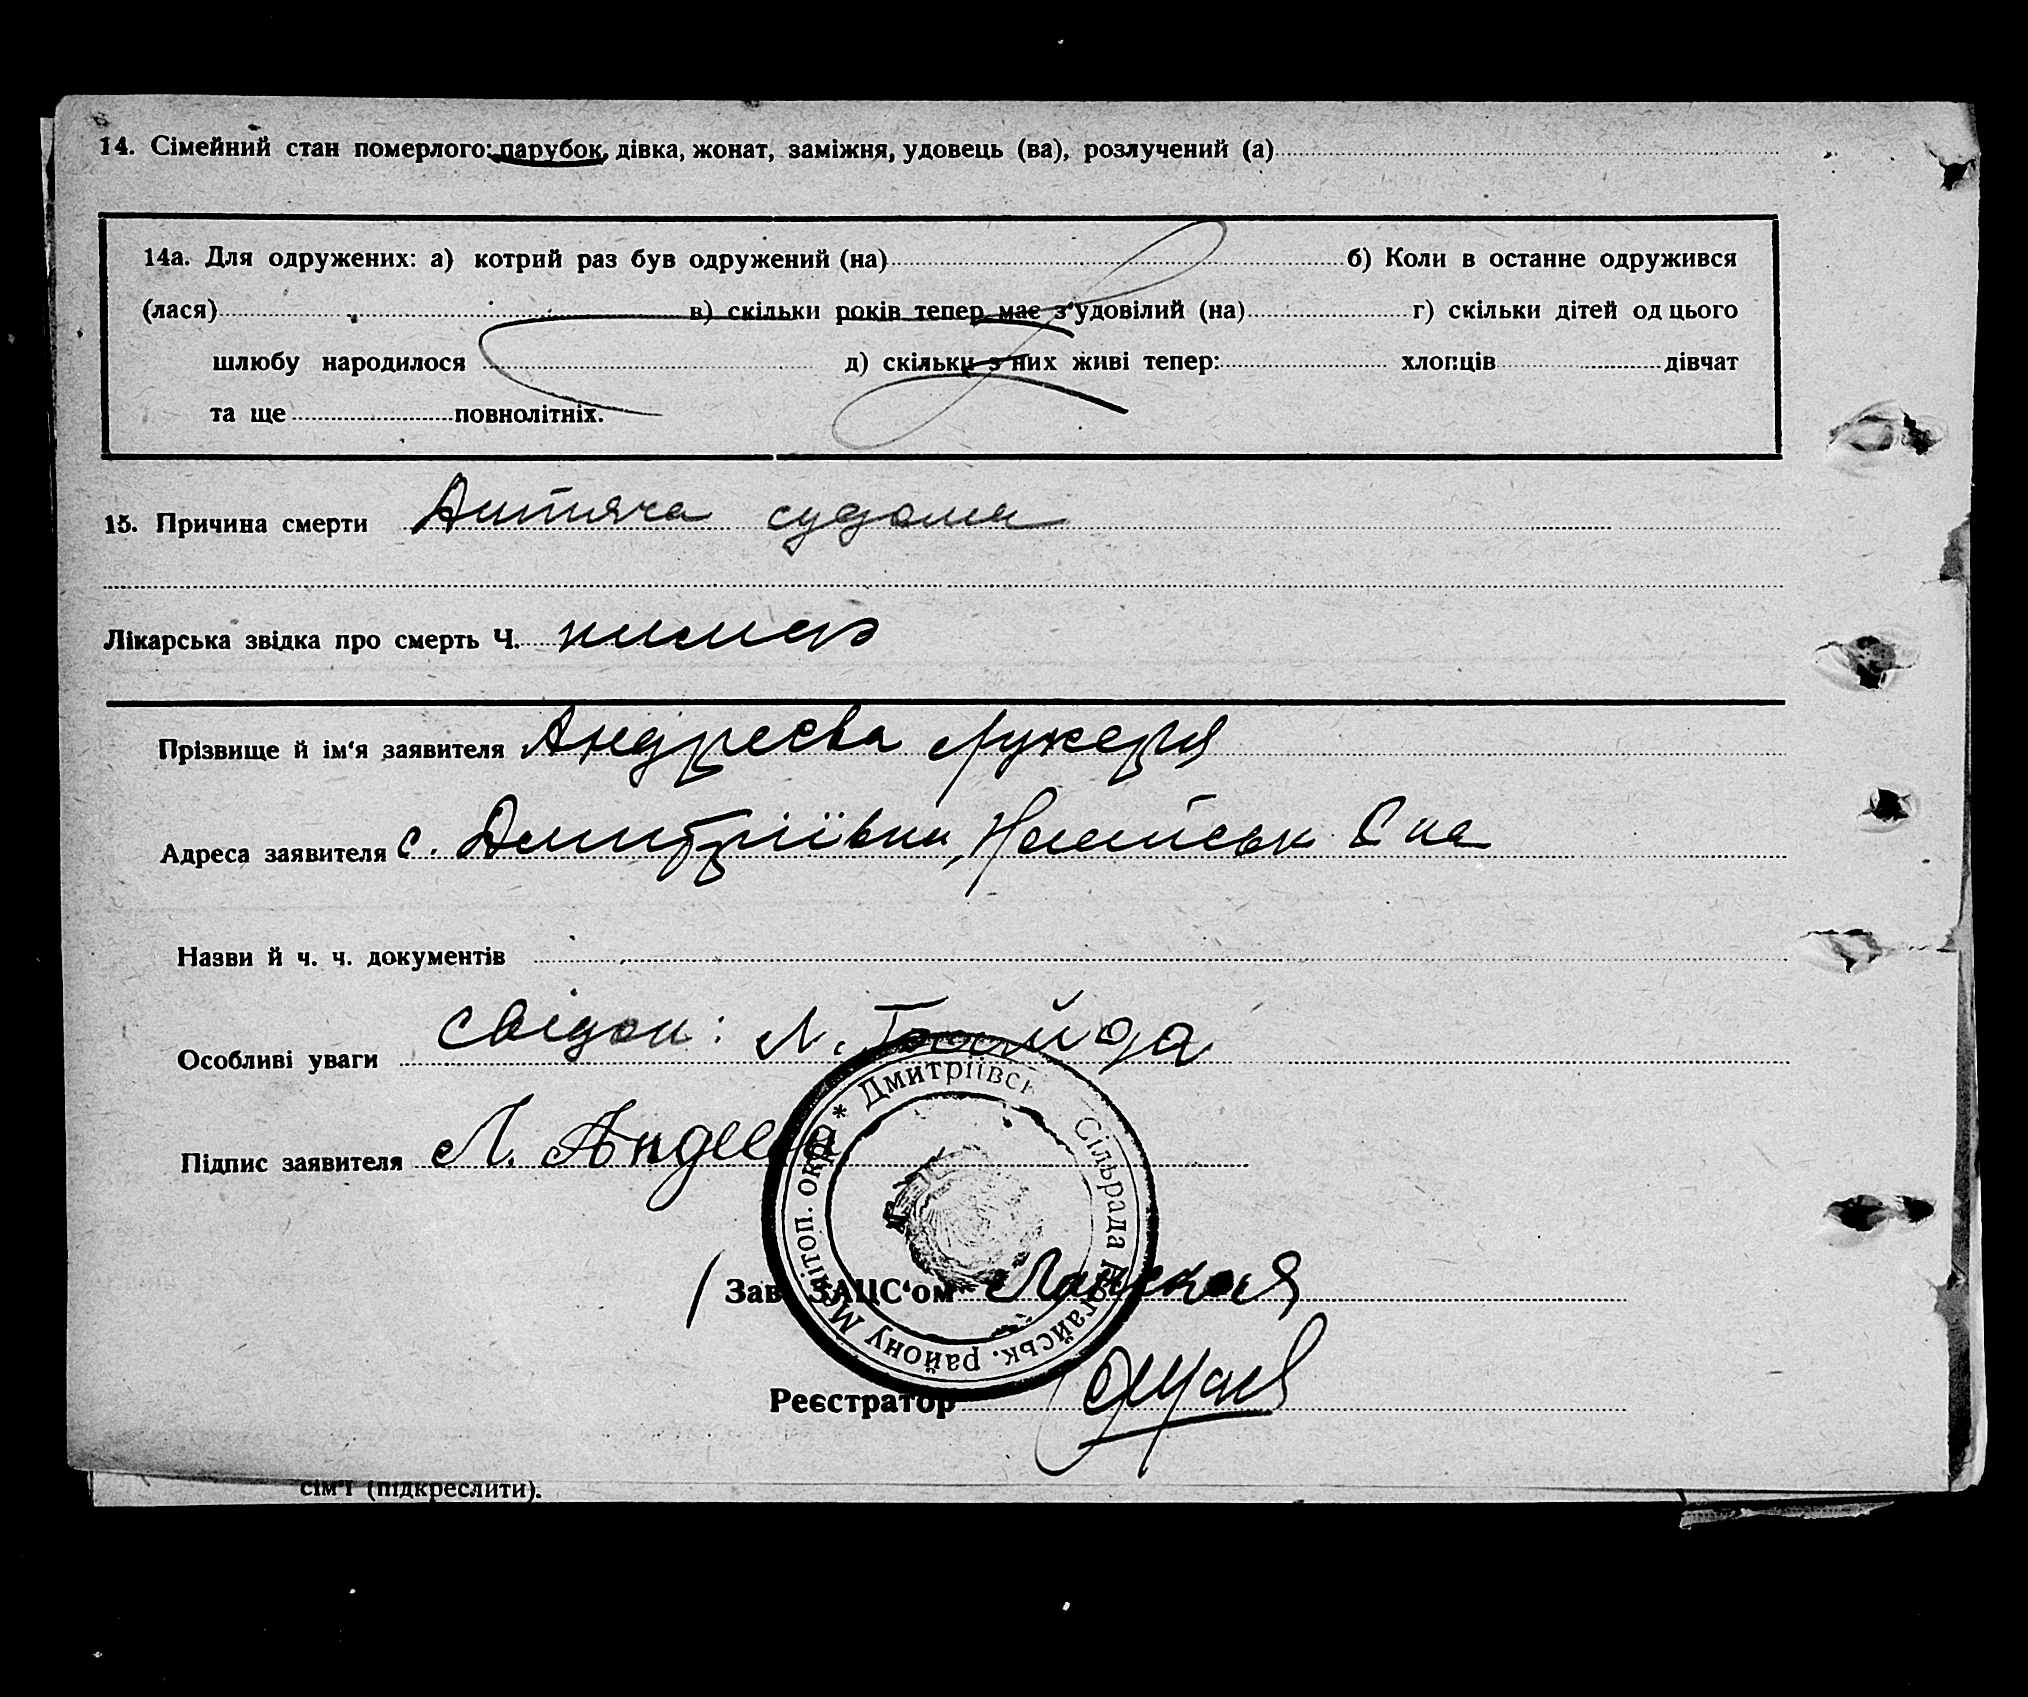 14. Сімейний стан померлого: парубок, дівка, жонат, заміжня, удовець (ва), розлучений (а)
14а. Для одружених: а) котрий раз був одружений (на) б) Коли в останне одружився
(лася) в) скільки років тепер має з'удовілий (на) г) скільки дітей од цього
шлюбу народилося д) скільки з них живі тепер: хлопців дівчат
та ще повнолітніх.
15. Причина смерти Дитяча судома
Лікарська звідка про смерть Ч. немає
Прізвище й ім'я заявителя Андреєва Лукеря
Адреса заявителя с. Дмитріївки,
Назви й ч. ч. документів
Особливі уваги Свідок: Л.
Підпис заявителя Л. Андеева
* Дмитріївськ Сільрада Ногайськ. району Мелітоп. окр.
Зав. ЗАЦС'ом
Реєстратор
сім'ї (підкреслити).